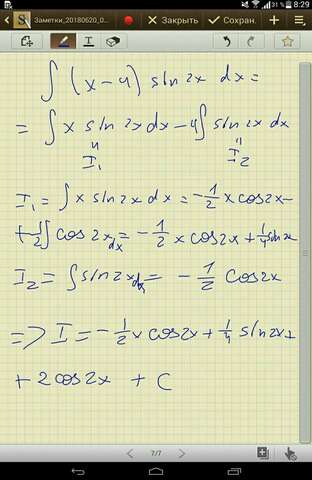 8:29
31 %
Заметки_20180620_0...
Закрыть
Сохран.
∫ (x-4) sin 2x dx =
= ∫ x sin 2x dx - 4 ∫ sin 2x dx
I₁ I₂
I₁ = ∫ x sin 2x dx = - 1/2 x cos 2x -
+ -1/2 ∫ cos 2x dx = - 1/2 x cos 2x + 1/4 sin x
I₂ = ∫ sin 2x dx = - 1/2 cos 2x
=> I = - 1/2 x cos 2x + 1/4 sin 2x +
+ 2 cos 2x + C
7/7